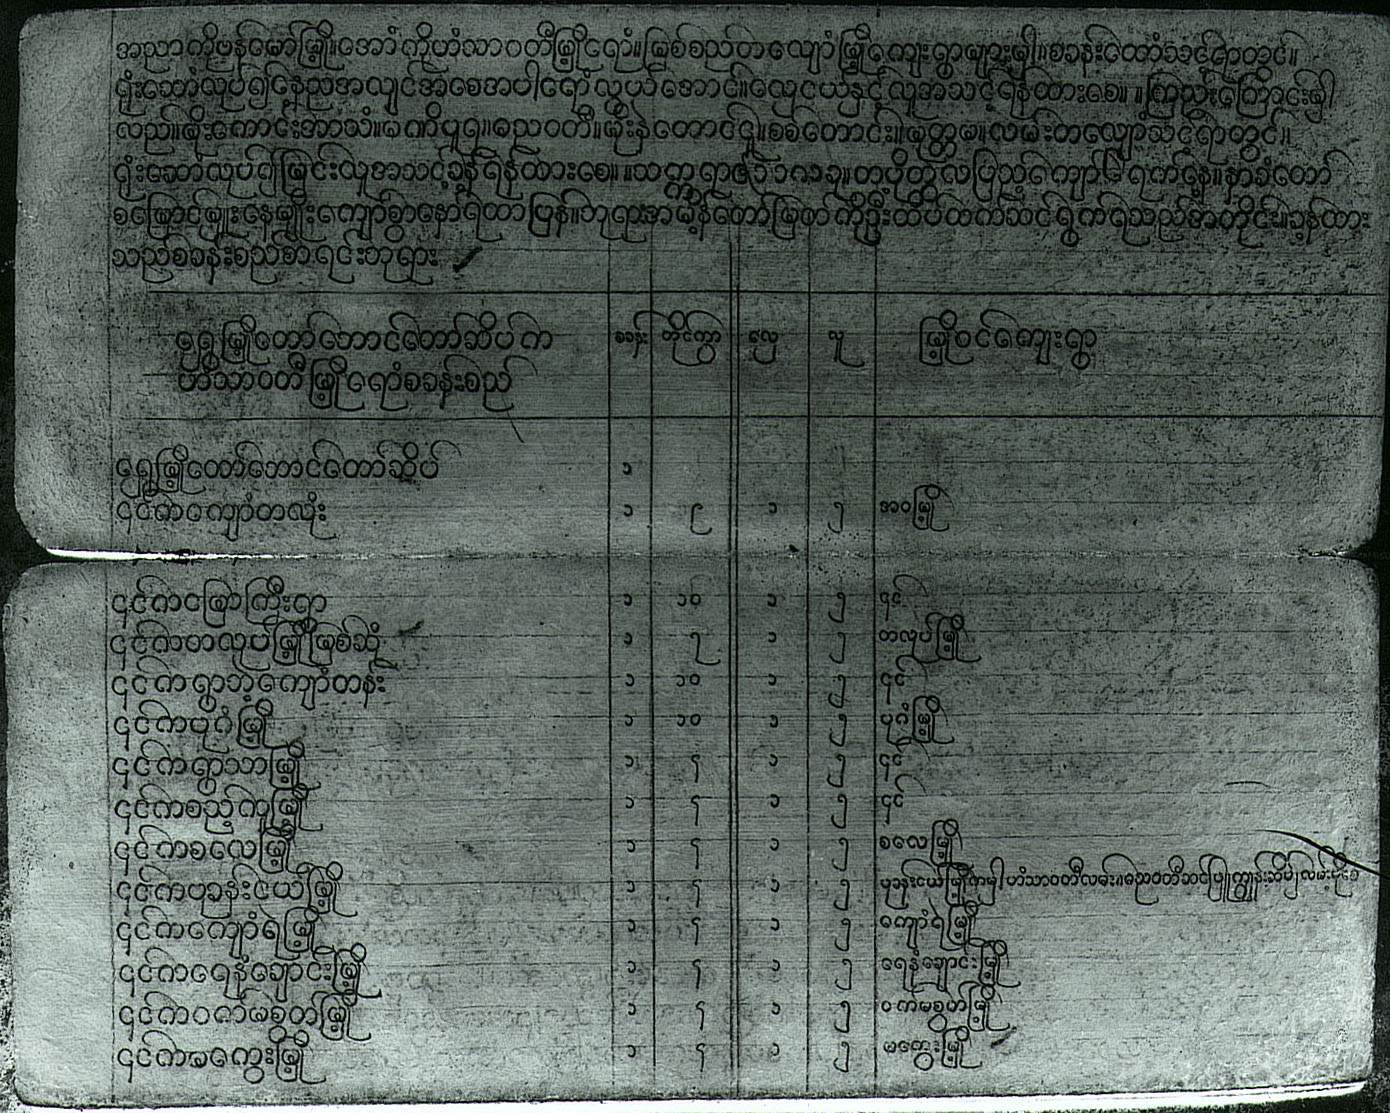 အညာကိုဗန်မော်မြို့။အောက်ကိုဟံသာဝတီမြို့ရောက်။မြစ်စည်တလျှောက်မြို့ကျေးရွာများမှ။စခန်းထောက်သင့်ရာတွင်။
ရုံးဆောက်လုပ်၍နေ့ညအလျင်အစေအပါရောက်လွယ်အောင်။လှေငယ်နှင့်လူအသင့်ရန်ထားစေ။ ။ကြည်းကြောင်းမှ
လည်။မိုးကောင်းအာသံ။မဏိပူရ။ဓညဝတီ။မိုးနဲတောင်ငူ။စစ်တောင်း။မုတ္တမ။လမ်းတလျှောက်သင့်ရာတွင်။
ရုံးဆောက်လုပ်၍မြင်းလူအသင့်ခန့်ရန်ထားစေ။ ။သက္ကရာဇ် ခု။တပို့တွဲလပြည့်ကျော်၆ရက်နေ့။နာခံတော်
စဖြောင်မှူးနေမျိုးကျော်စွာနော်ရထာပြန်။ဘုရားအမိန့်တော်မြတ်ကိုဦးထိပ်ထက်ဆင်ရွက်ရသည်အတိုင်း။ခန့်ထား
သည်စခန်းစည်စာရင်းဘုရား
ရွှေမြို့တော်ဘောင်တော်ဆိပ်က စခန်း တိုင်ကွာ လှေ လူ မြို့ဝင်ကျေးရွာ
ဟံသာဝတီမြို့ရောက်စခန်းစည်
ရွှေမြို့တော်ဘောင်တော်ဆိပ် ၁
၎င်ကကျောက်တလုံး ၁ ၉ ၁ ၂ အဝမြို့
၎င်က ကြီးရွာ ၁ ၁၀ ၁ ၂ ၎င်
၎င်ကတလုပ်မြို့မြစ်ဆုံ ၁ ၇ ၁ ၂ တလုပ်မြို့
၎င်ကရွာဘဲ့ကျောက်တန်း ၁ ၁၀ ၁ ၂ ၎င်
၎င်ကပုဂံမြို့ ၁ ၁၀ ၁ ၂ ပုဂံမြို့
၎င်ကရွာသာမြို့ ၁ ၅ ၁ ၂ ၎င်
၎င်ကစည့်ကူမြို့ ၁ ၅ ၁ ၂ ၎င်
၎င်ကစလေမြို့ ၁ ၅ ၁ ၂ စလေမြို့
၎င်ကပုခန်းငယ်မြို့ ၁ ၅ ၁ ၂ ပုခန်းငယ်မြို့ကမှ ဟံသာဝတီလမ်း။ဓညဝတီဆင်ဖြူကျွန်းဆိပ်
၎င်ကကျောက်ရဲမြို့ ၁ ၅ ၁ ၂ ကျောက်ရဲမြို့
၎င်ကရေနံချောင်းမြို့ ၁ ၅ ၁ ၂ ရေနံချောင်းမြို့
၎င်ကဝက်မစွတ်မြို့ ၁ ၅ ၁ ၂ ဝက်မစွတ်မြို့
၎င်ကမကွေးမြို့ ၁ ၅ ၁ ၂ မကွေးမြို့